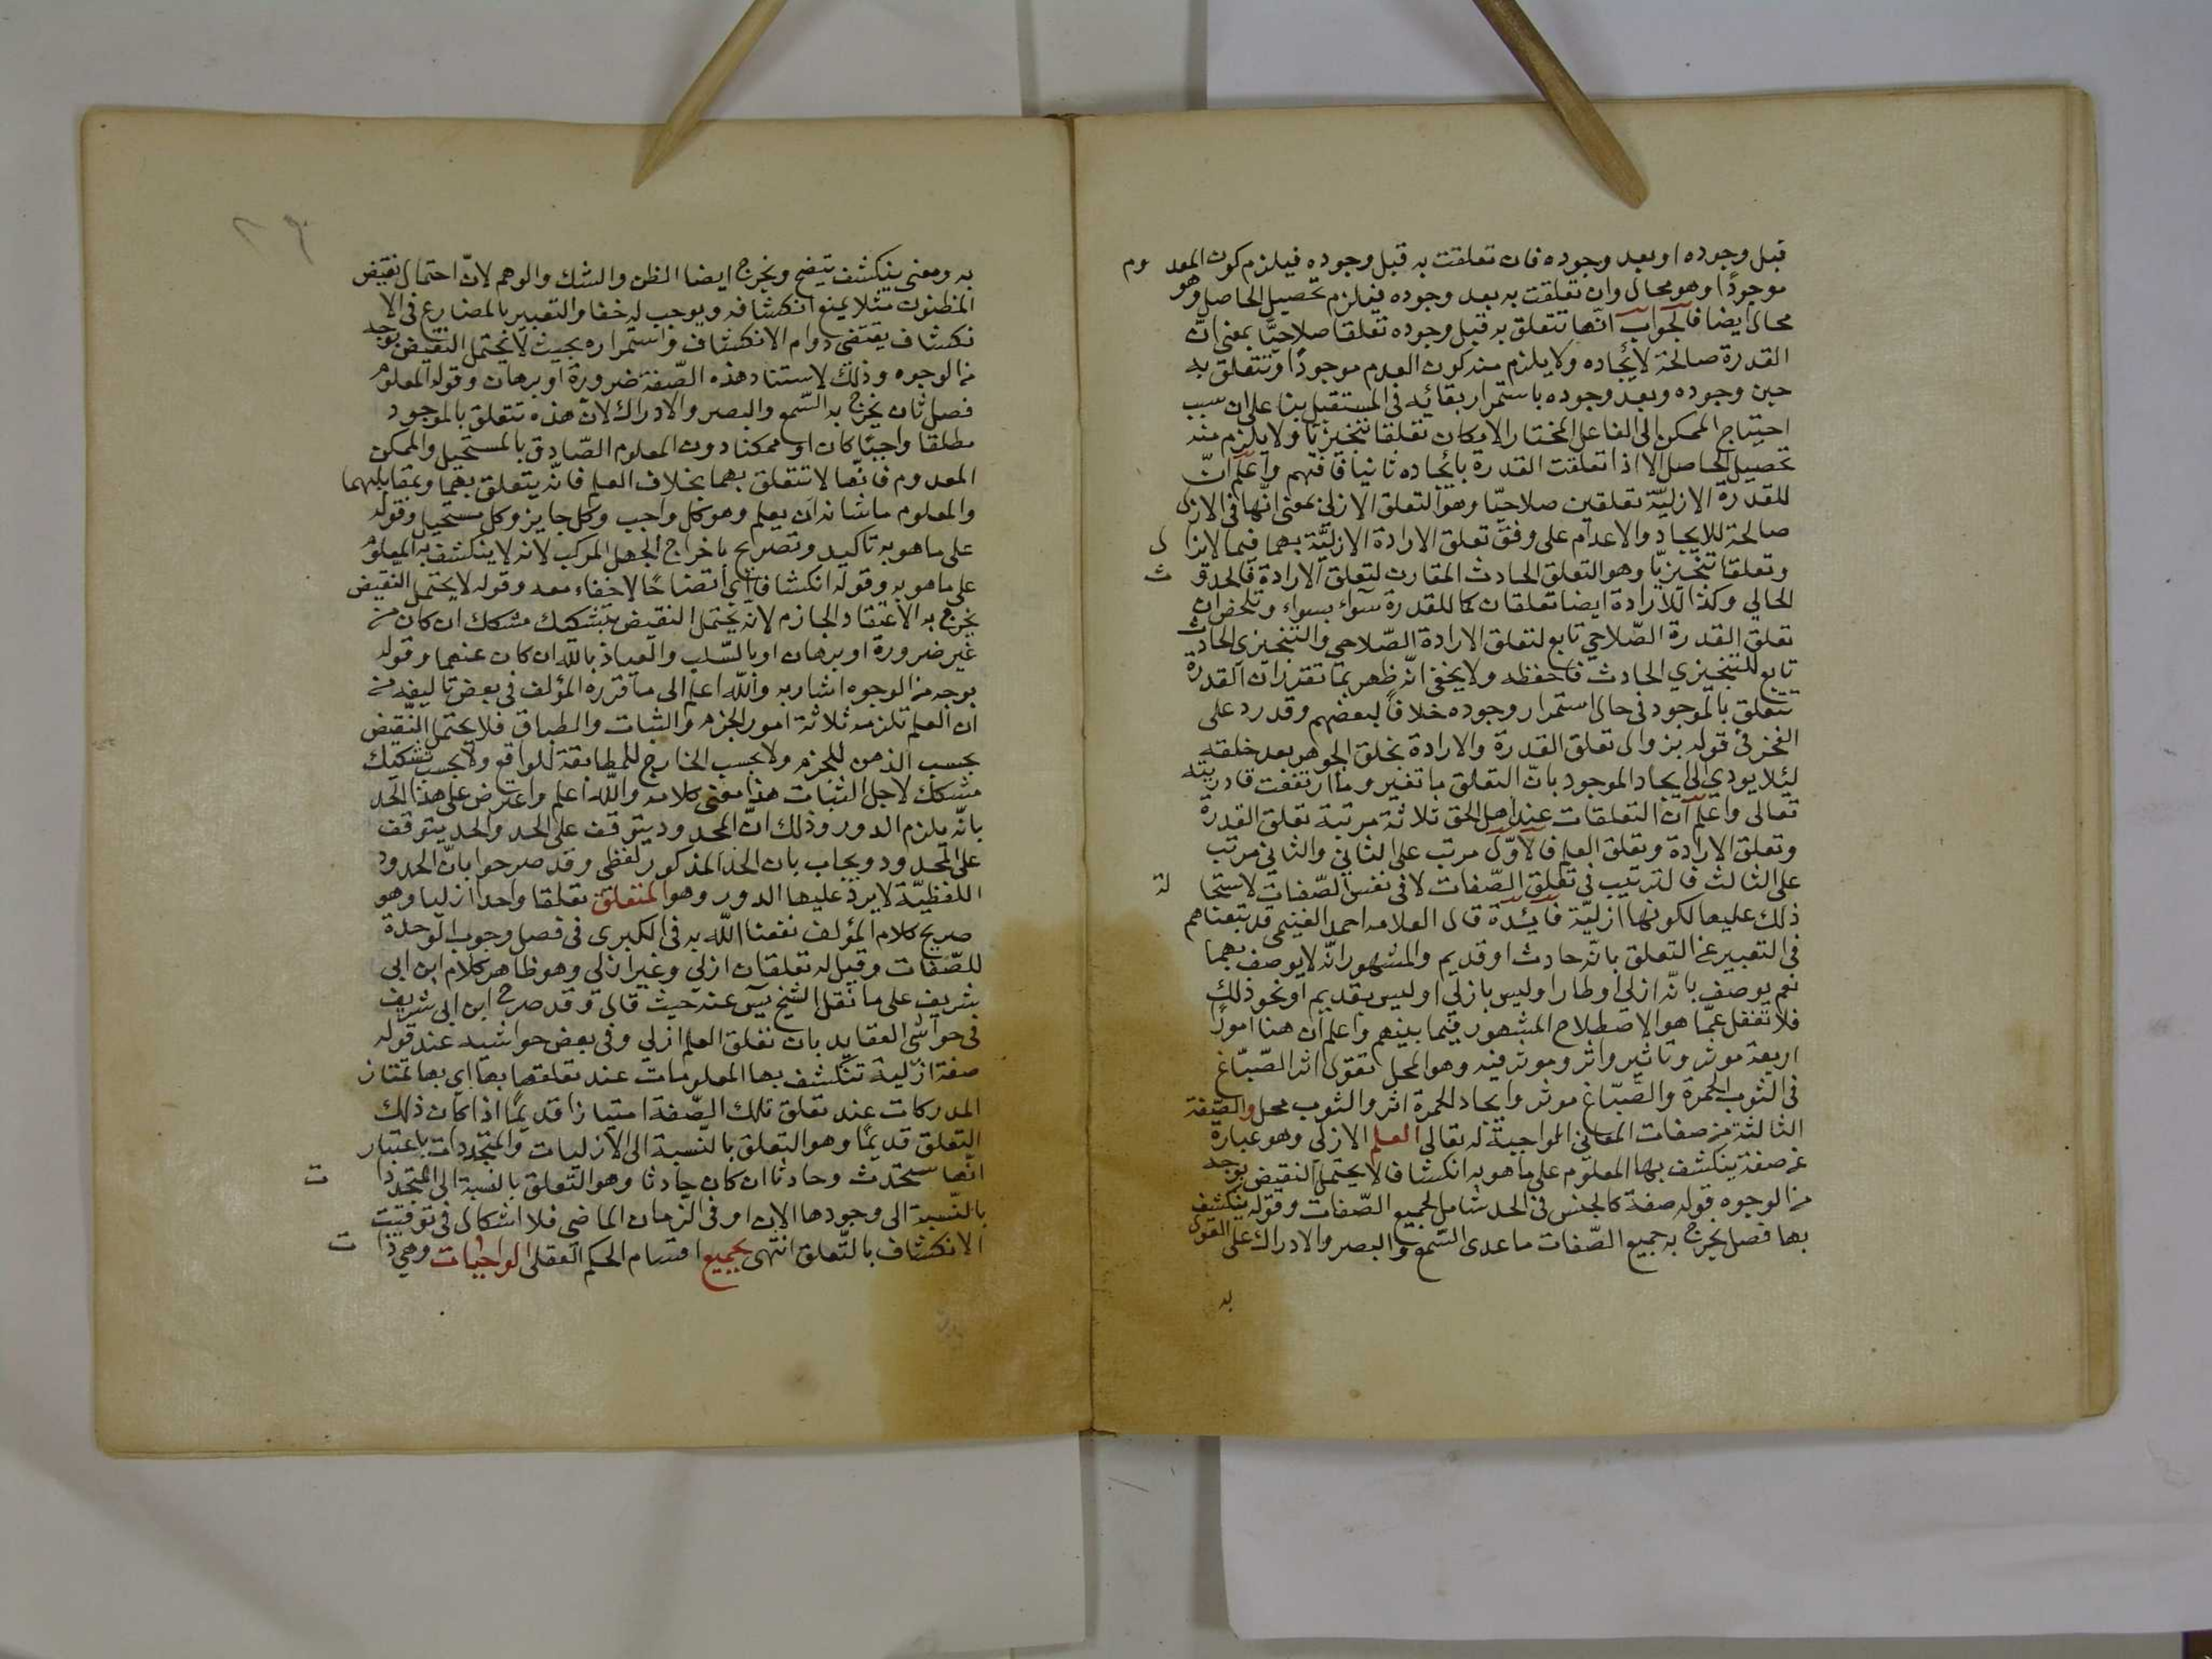 قبل وجوده او بعد وجوده فان تعلقت به قبل وجوده فيلزم كون المعدوم
موجودًا وهو محال وان تعلقت به بعد وجوده فيلزم تحصيل الحاصل وهو
محال ايضا فالجواب انّها تتعلق به قبل وجوده تعلقا صلاحيًّا بمعنى انّ
القدرة صالحة لايجاده ولا يلزم منه كون العدم موجودًا وتتعلق به
حين وجوده وبعد وجوده باستمرار بقائه فى المستقبل بنا على ان سبب
احتياج الممكن الى الفاعل المختار الامكان تعلقا تنجيزيّا ولا يلزم منه
تحصيل الحاصل الا اذا تعلقت القدرة بايجاده ثانيا فافهم واعلم انّ
للقدرة الازليّة تعلقين صلاحيّا وهو التعلق الازلى بمعنى انّها فى الازل
صالحة للايجاد والاعدام على وفق تعلق الارادة الازليّة بهما فيما لايزال
وتعلقا تنجيزيّا وهو التعلق الحادث المقارن لتعلق الارادة فالحدوث
الحالي وكذا للارادة ايضا تعلقان كما للقدرة سوآء بسواء وتلخص ان
تعلق القدرة الصّلاحي تابع لتعلق الارادة الصّلاحي والتنجيزى الحادث
تابع للتنجيزي الحادث فاحفظه ولا يخفى انّه ظهر بما تقرر ان القدرة
تتعلق بالموجود فى حال استمرار وجوده خلافًا لبعضهم وقد رد على
الفخر فى قوله بزوال تعلق القدرة والارادة بخلق الجوهر بعد خلقه
لئلا يودي الى ايجاد الموجود بانّ التعلق باتغير وما ارتفعت قادريته
تعالى واعلم ان التعلقات عند اهل الحق ثلاثة مرتبة تعلق القدرة
وتعلق الارادة وتعلق العلم فالاوّل مرتب على الثاني والثاني مرتب
على الثالث فالترتيب فى تعلق الصّفات لا فى نفس الصّفات لاستحالة
ذلك عليها لكونها ازليّة فايدة قال العلامه احمد الغنيمى قد تبعناهم
فى التعبير عن التعلق بانّه حادث او قديم والمشهور انّه لا يوصف بهما
نعم يوصف بانّه ازلي او طارا وليس بازلي او ليس بقديم او نحو ذلك
فلا تغفل عمّا هو الاصطلاح المشهور فيما بينهم واعلم ان هنا امورًا
اربعة موثر وتاثير واثر وموثر فيه وهو المحل تقول اثر الصّبّاغ
فى الثوب الحمرة والصّبّاغ موثر وايجاد الحمرة اثر والثوب محل والصّفة
الثالثة من صفات المعاني الواجبة له تعالى العلم الازلى وهو عبارة
عن صفة ينكشف بها المعلوم على ماهو به انكشافا لا يحتمل النقيض بوجه
من الوجوه قوله صفة كالجنس فى الحد شامل لجميع الصّفات وقوله ينكشف
بها فصل يخرج به جميع الصّفات ماعدى السّمع والبصر والادراك على القول
به
به ومعنى ينكشف يتضح ويخرج ايضا الظن والشك والوهم لانّ احتمال نقيض
المظنون مثلا يمنع انكشافه ويوجب له خفا والتعبير بالمضارع فى الا
نكشاف يقتضى دوام الانكشاف واستمراره بحيث لا يحتمل النقيض بوجه
من الوجوه وذلك لاستناد هذه الصّفة ضرورة او برهان وقوله المعلوم
فصل ثان يخرج به السّمع والبصر والادراك لانّ هذه تتعلق بالموجود
مطلقا واجبًا كان او ممكنا دون المعلوم الصّادق بالمستحيل والممكن
المعدوم فانّها لا تتعلق بهما بخلاف العلم فانّه يتعلق بهما وبمقابلهما
والمعلوم ماشانه ان يعلم وهو كل واجب وكل جايز وكل مستحيل وقوله
على ماهو به تاكيد وتصريح باخراج الجهل المركب لانه لا ينكشف به المعلوم
على ماهو به وقوله انكشافا اي اتضاحًا لا خفاء معه وقوله لا يحتمل النّقيض
يخرج به الاعتقاد الجازم لانّه يحتمل النقيض بتشكيك مشكك ان كان من
غير ضرورة او برهان او بالسّلب والعياذ بالله ان كان عنهما وقوله
بوجه من الوجوه اشار به والله اعلم الى ما قرره المؤلف فى بعض تاليفه من
ان العلم تلزمه ثلاثة امور الجزم والثبات والطباق فلا يحتمل النّقيض
بحسب الذهن للجزم ولا بحسب الخارج للمطابقة للواقع ولا بحسب تشكيك
مشكك لاجل الثبات هذا معنى كلامه والله اعلم واعترض على هذا الحد
بانّه يلزم الدور وذلك انّ المحدود يتوقف على الحد والحد يتوقف
على المحدود ويجاب بان الحد المذكور لفظى وقد صرحوا بانّ الحدود
اللفظيّة لا يرد عليها الدور وهو المتعلق تعلقا واحدا ازليا وهو
صريح كلام المؤلف نفعنا الله به فى الكبرى فى فصل وجوب الوحدة
للصّفات وقيل له تعلقان ازلي وغير ازلي وهو ظاهر كلام ابن ابى
شريف على ما نقل الشيخ يس عنه حيث قال وقد صرح ابن ابى شريف
فى حواشى العقايد بان تعلق العلم ازلي وفى بعض حواشيه عند قوله
صفة ازليّة تنكشف بها المعلومات عند تعلقها بها اي بها تمتاز
المدركات عند تعلق تلك الصّفة امتيازا قديمًا اذا كان ذلك
التعلق قديمًا وهو التعلق بالنّسبة الى الازليات والمتجددات باعتبار
انّها ستحدث وحادثا ان كان حادثا وهو التعلق بالنسبة الى المتجددات
بالنّسبة الى وجودها الان او فى الزّمان الماضى فلا اشكال فى توقيت
الانكشاف بالتّعلق انتهى بجميع اقسام الحكم العقلى الواجبات وهي ذات